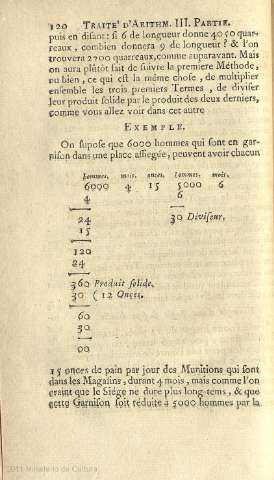 120 TRAITÉ D'ARITHM. III. PARTIE.
puis en disant : si 6 de longueur donne 4050 quar-
reaux, combien donnera 9 de longueur ? & l'on
trouvera 2700 quarreaux, comme auparavant. Mais
on aura plûtôt fait de suivre la premiere Méthode,
ou bien, ce qui est la même chose, de multiplier
ensemble les trois premiers Termes, de diviser
leur produit solide par le produit des deux derniers,
comme vous allez voir dans cet autre
EXEMPLE.
On supose que 6000 hommes qui sont en gar-
nison dans une place assiegée, peuvent avoir chacun
hommes. mois. onces. hommes. mois.
6000 4 15 5000 6
4 6
24 30 Diviseur.
15
120
24
360 Produit solide.
30 ( 12 Onces.
60
30
00
15 onces de pain par jour des Munitions qui sont
dans les Magasins, durant 4 mois, mais comme l'on
craint que le Siége ne dure plus long-tems, & que
cette Garnison soit réduite à 5000 hommes par la
2011 Ministerio de Cultura